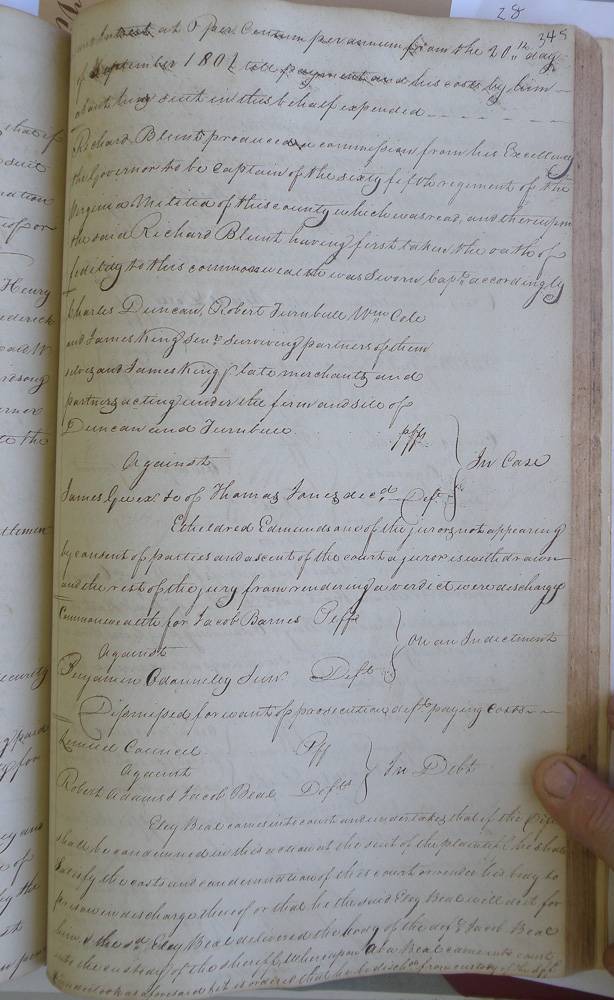 28
345
and interest at 6 per Centum per annum from the 20th day
of September 1801 till payment and his costs by him
about his suit in this behalf expended
Richard Blunt produced a commission from his Excellency
the Governor to be Captain of the sixty fifth regiment of the
Virginia Militia of this county which was read, and thereupon
the said Richard Blunt having first taken the oath of
fidelity to this commonwealth was sworn Capt. accordingly
Charles Duncan, Robert Turnbull Wm Cole
and James King Senr. surviving partners of them
selves and James King Jr late merchants and
partners acting under the firm and stile of
Duncan and Turnbull plffs
Against } In Case
James of Thomas Jones decd. Deft.
Etheldred Edmunds one of the jurors not appearing
by consent of parties and ascent of the court a juror is withdrawn
and the rest of the jury from rendering a verdict were discharge
Commonwealth for Jacob Barnes Plff
Against } on an Indictment
Benjamin Deft
Dismissed for want of prosecution, deft paying costs
Lemuel Council Plf
Against } In Debt
Robert Adams & Jacob Beal Defts
Eley Beal came into court and undertakes that if the
shall be condemned in this action at the suit of the plaintiff he shall
satisfy the costs and condemnation of the court or render his body to
prison in discharge thereof or that he the said Eley Beal will do it for
him, & the sd. Eley Beal delivered the body of the deft Jacob Beal
into the custody of the sheriff whereupon Beal came into court
and undertook as aforesaid & it is ordered that he be from custody